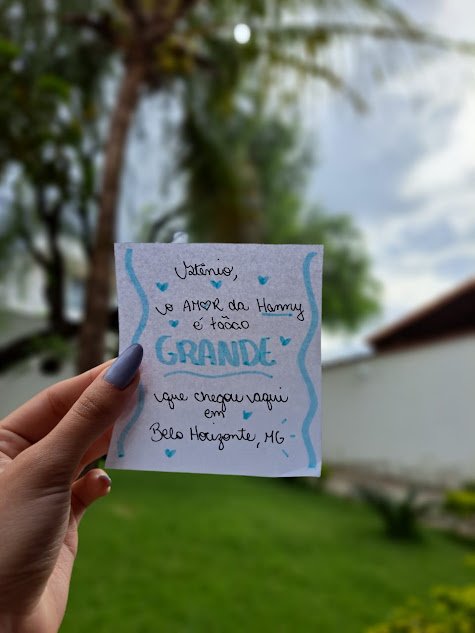 Vitânio,
o AMOR da Hanny
é tãooo
GRANDE
que chegou aqui
em
Belo Horizonte, MG